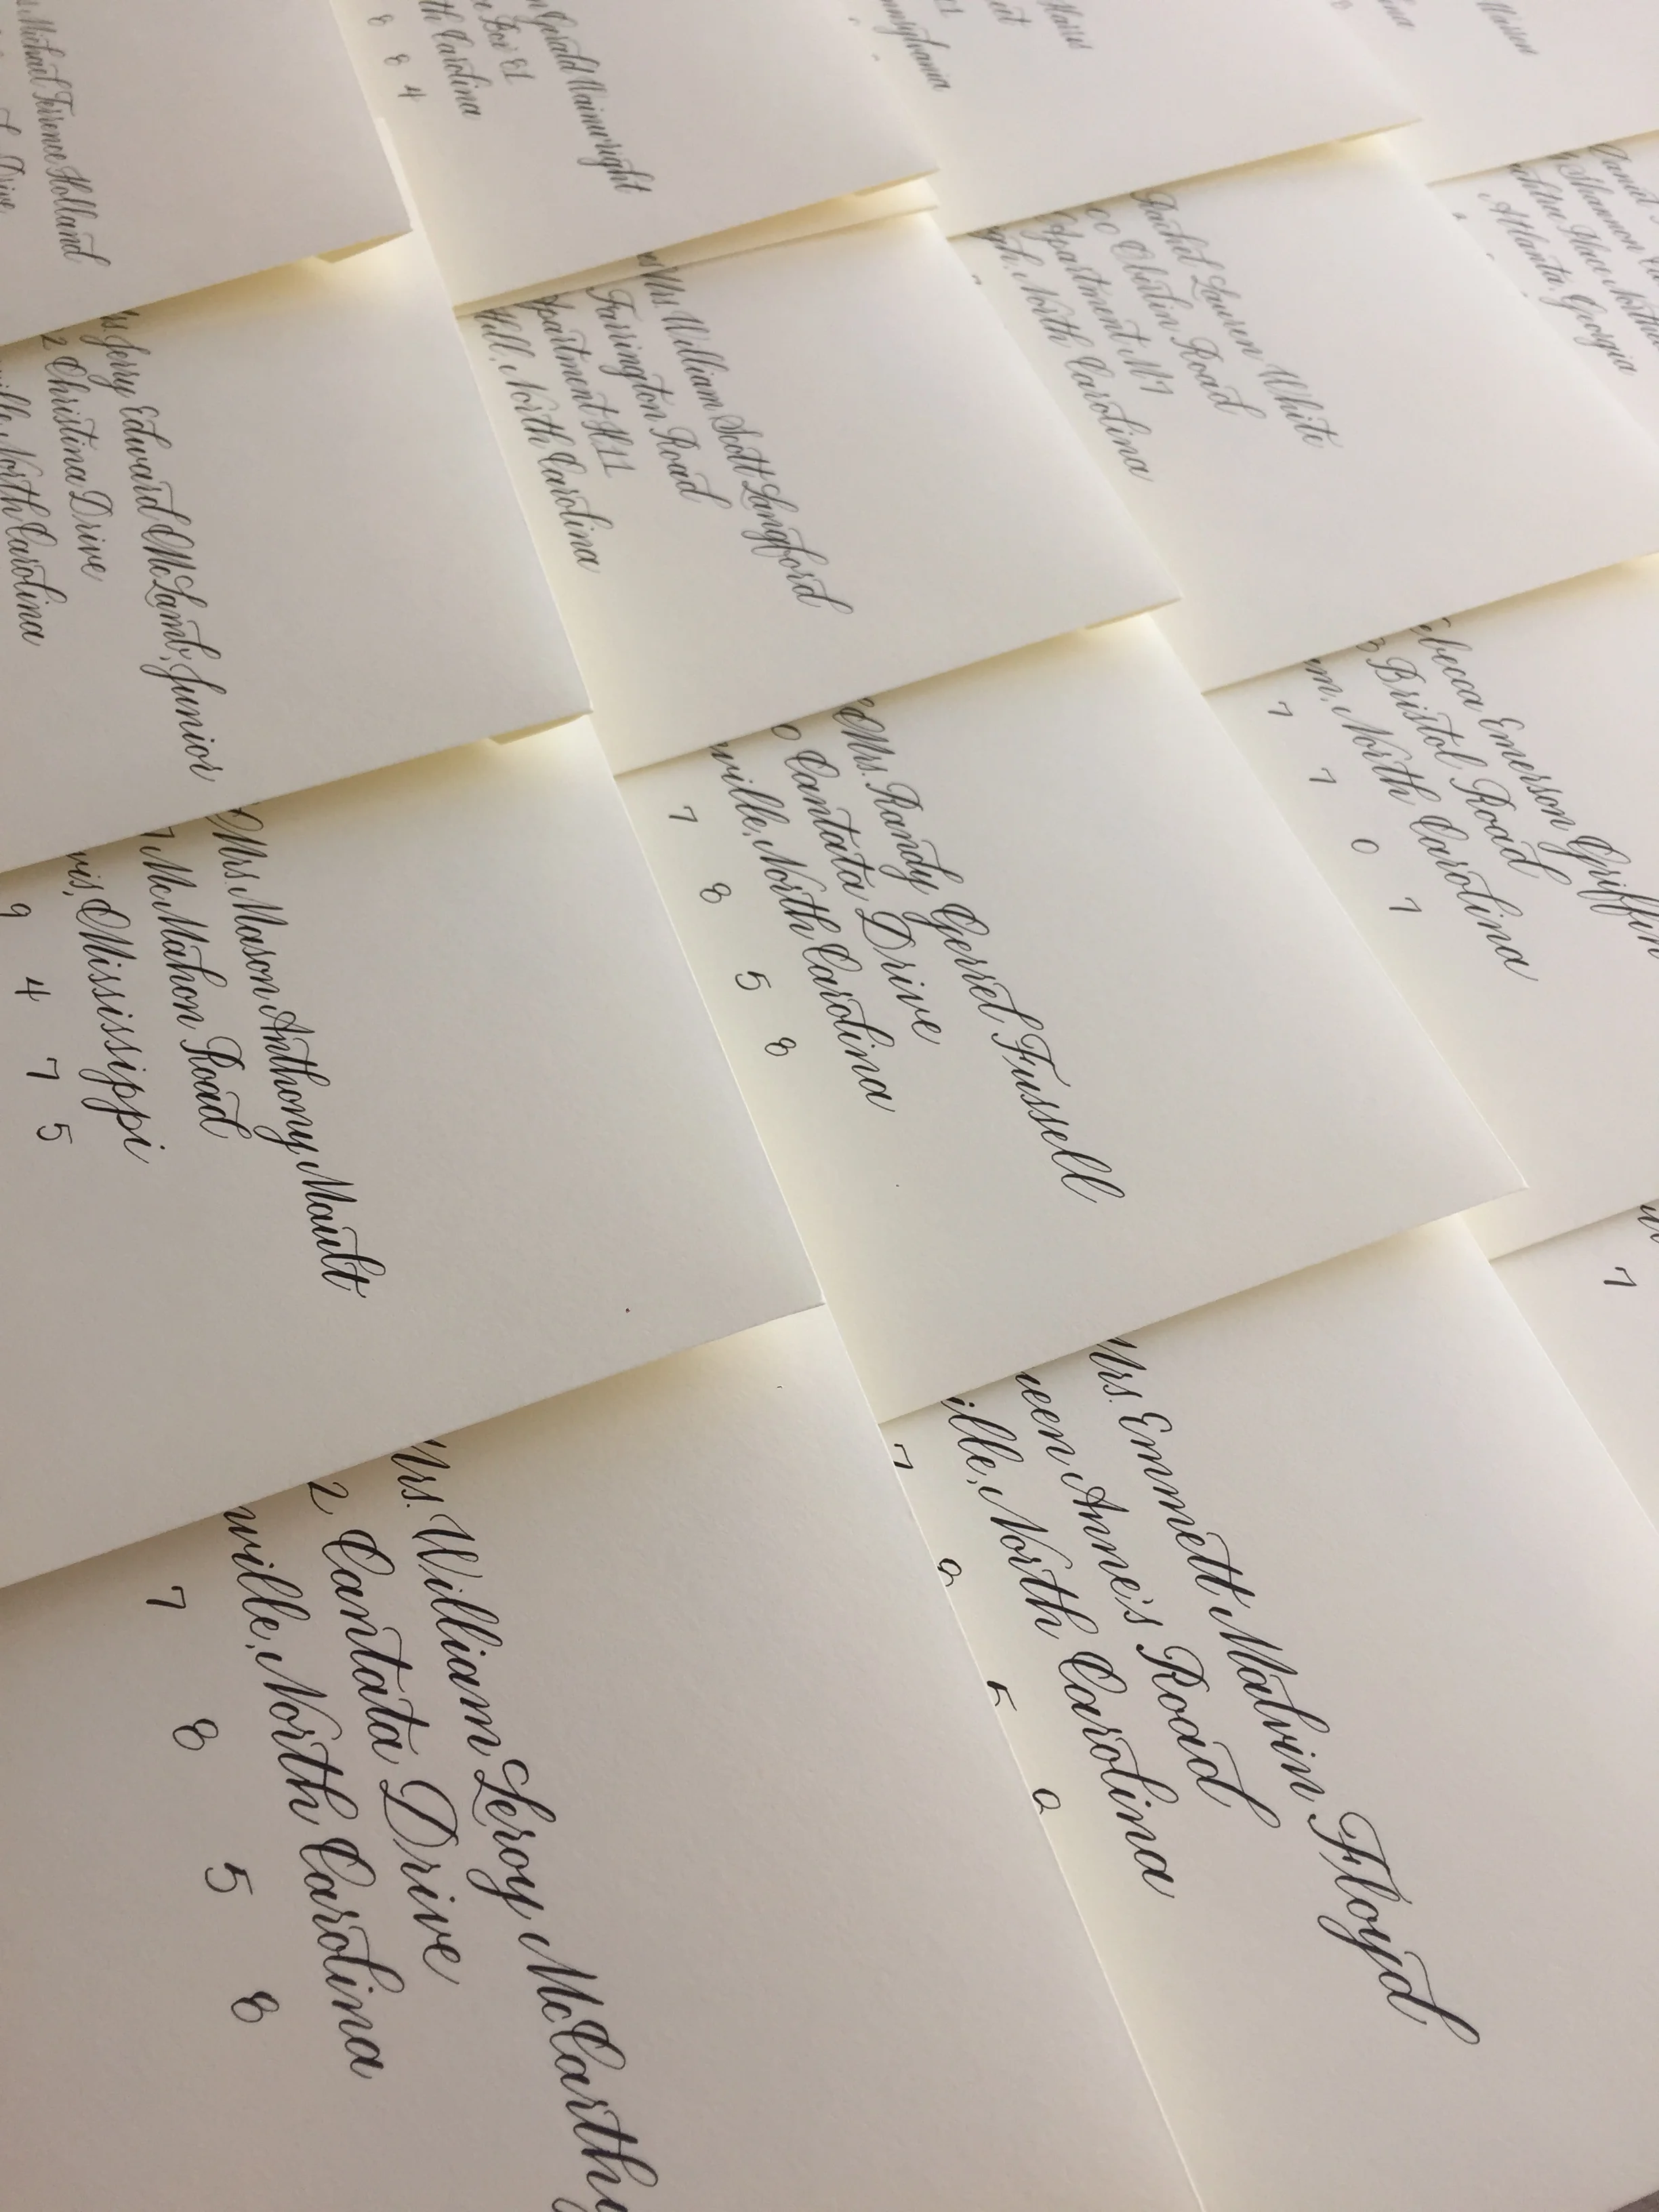 Michael Terrence Holland
Drive
Gerald Wainwright
Box 81
th Carolina
8 8 4
nnsylvania
Jerry Edward McLamb, Junior
2 Christina Drive
ville, North Carolina
Mrs. William Scott Langford
Farrington Road
Apartment H11
Hill, North Carolina
Rachel Lauren White
00 Oberlin Road
Apartment M7
gh, North Carolina
Shannon
Atlanta, Georgia
Mrs. Mason Anthony Mault
7 McMahon Road
vis, Missisippi
9 4 7 5
Mrs. Randy Gerrel Fussell
0 Cantata Drive
wille, North Carolina
7 8 5 8
ebecca Emerson Griffin
3 Bristol Road
m, North Carolina
7 7 0 7
Mrs. William Leroy McCarthy
2 Cantata Drive
wille, North Carolina
7 8 5 8
Mrs. Emmett Malvin Floyd
ueen Anne's Road
ille, North Carolina
7
7